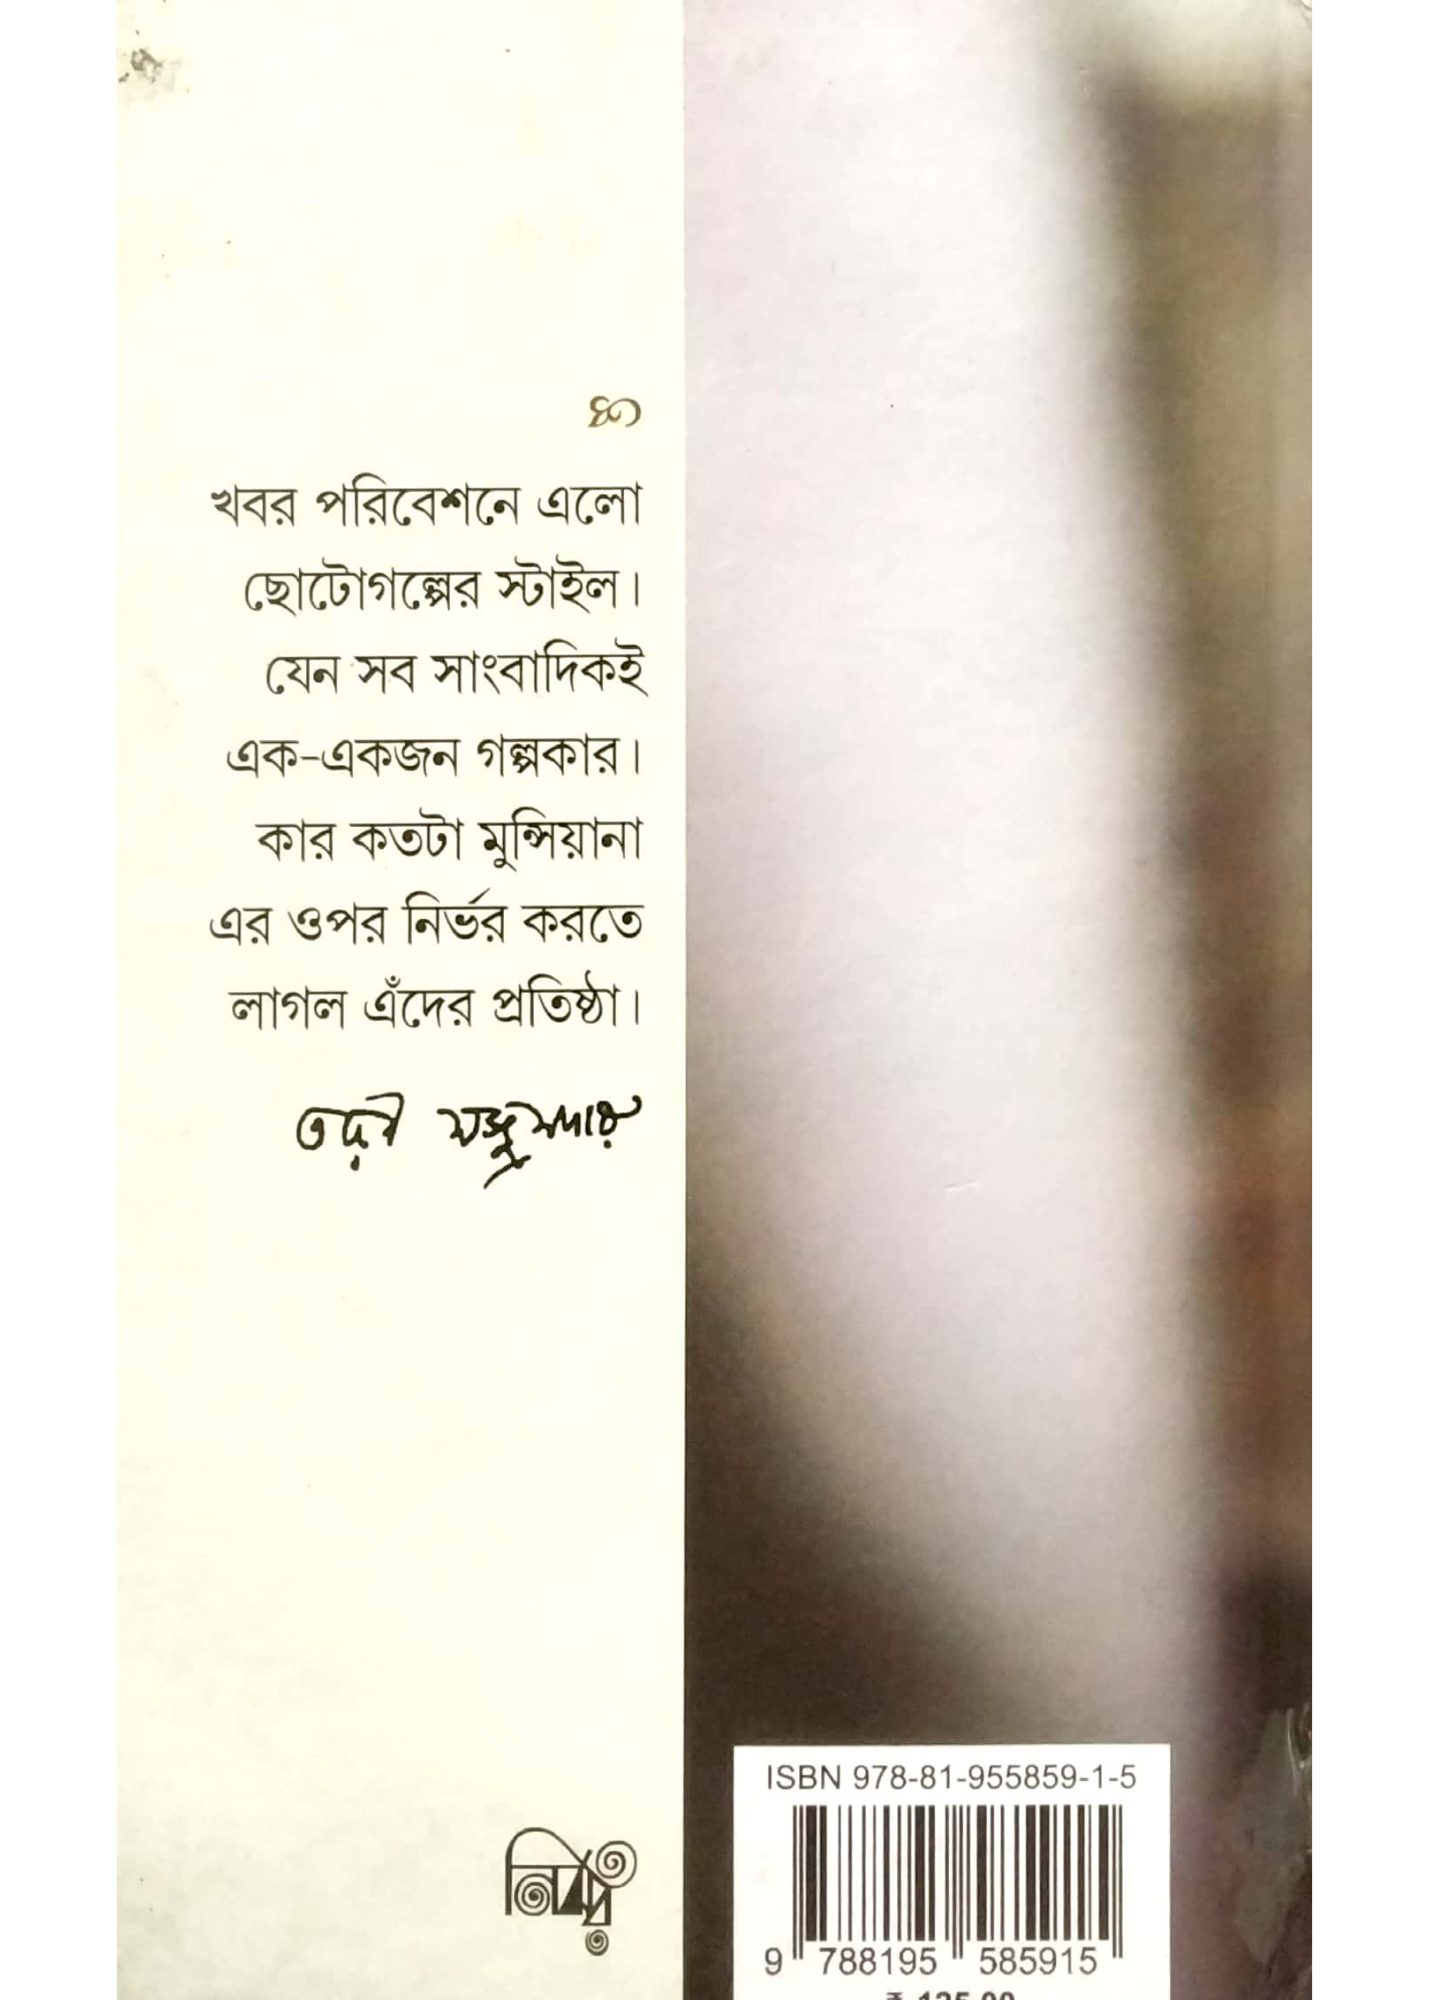 খবর পরিবেশনে এলো
ছোটোগল্পের স্টাইল।
যেন সব সাংবাদিকই
এক-একজন গল্পকার।
কার কতটা মুন্সিয়ানা
এর ওপর নির্ভর করতে
লাগল এঁদের প্রতিষ্ঠা।
মজুমদার
ISBN 978-81-955859-1-5
9 788195 585915